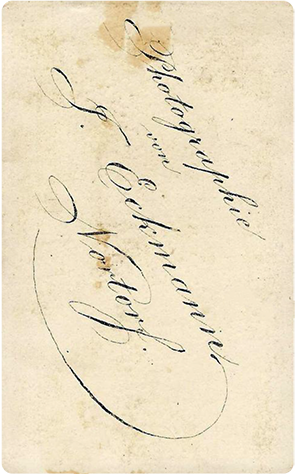 Photographie
von
J. Eckmann,
Nortorf.